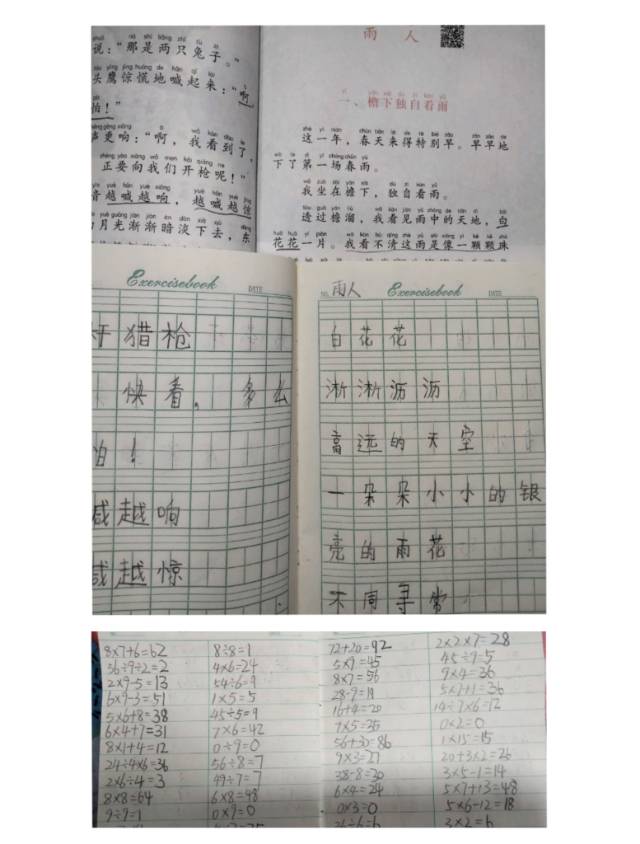 说：“那是两只兔子。”
头鹰惊慌地喊起来：“啊
怕！”
声更响：“啊，我看到了，
正要向我们开枪呢！”
音越喊越响，越喊越惊
月光渐渐暗淡下去，东
雨人
一、檐下独自看雨
这一年，春天来得特别早。早早地
下了第一场春雨。
我坐在檐下，独自看雨。
透过檐溜，我看见雨中的天地，白
花花一片。我看不清这雨是像一颗颗珠
Exercisebook
DATE
猎枪
快看，多么
怕！
喊越响
喊越惊
NO. 雨人 Exercisebook DATE
白花花
淅淅沥沥
高远的天空
一朵朵小小的银
亮的雨花
不同寻常
8×7+6=62
56÷9÷2=2
2×9-5=13
6×9-3=51
5×6+8=38
6×4+7=31
8×1+4=12
24÷4×6=36
2×6÷4=3
8×8=64
9÷9=1
8÷8=1
4×6=24
54÷6=9
1×5=5
45÷5=9
7×6=42
0÷9=0
56÷8=7
49÷7=7
6×8=48
0×9=0
72+20=92
5×9=45
8×7=56
28-9=19
16+4=20
7×5=35
56+30=86
9×3=27
38-8=30
6×4=24
0×3=0
36÷6=6
2×2×7=28
45÷9=5
9×4=36
5×7+1=36
14÷7×6=12
0×2=0
1×15=15
20+3×2=26
3×5-1=14
5×7+13=48
5×6-12=18
3×2=6